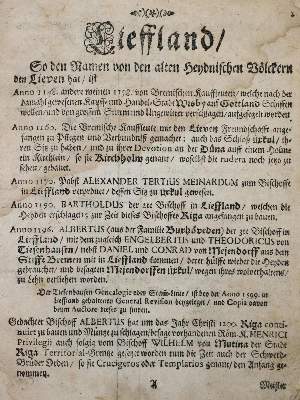 Liefland/
So den Namen von den alten Heydnischen Völckern
den Lieven hat / ist
Anno 1148. andere meinen 1158. von Bremischen Kauffleuten / welche nach der
damahl gewesenen Kauff- und Handel-Stadt Wisby auf Gottland Schiffen
wollen / und von grossem Sturm und Ungewitter verschlagen / aufgesegelt worden
Anno 1160. Die Bremische Kauffleute mit den Lieven Freundschafft ange-
fangen zu Pflegen und Verbundnüß gemachet; auch das Schloß Uxkul anzu-
fangen zu bauen / und zu ihrer Devotion an der Düna auf einem Holme
ein Kirchlein / so sie Kirchholm genant / woselbst die rudera noch jetzo zu
sehen / gebauet.
Anno 1170. Pabst ALEXANDER TERTIUS MEINARDUM zum Bischoffe
in Liefland verordnet / dessen Sitz zu Uxkul gewesen.
Anno 1190. BARTHOLDUS der 2te Bischoff in Liefland / welchen die
Heyden erschlagen; zur Zeit dieses Bischoffes Riga angefangen zu bauen.
Anno 1196. ALBERTUS (aus der Familie Buxhöveden) der 3te Bischoff in
Liefland / mit dem zugleich ENGELBERTUS und THEODORICUS von
Tiesenhausen / nebst DANIEL und CONRAD von Meyendorff aus dem
Stifte Bremen mit in Liefland kommen / derer hülffe wieder die Heyden
gebrauchet / und besagten Meyendorffen Uxkul / wegen ihres wolverhaltens /
zu Lehn verliehen worden.
Der Tiesenhausen Genealogie oder Stam-linie / ist bey der Anno 1599. in
Liefland gehaltenen General Revision beygeleget / und Copia davon
beym Auctore dieses zu finden.
Gedachter Bischoff ALBERTUS hat um das Jahr Christi 1200. Riga conti-
nuiret zu bauen und Müntze zu schlagen / befage vorhandenen Röm. K. HENRICI
Privilegii auch folgig vom Bischoff WILHELM von Mutina der Stadt
Riga Territorial-Grentze gesetzet worden zum die Zeit auch der Schwerdt-
Brüder Orden / so sie Crucigeros oder Templarios genant / den Anfang ge-
nommen.
A